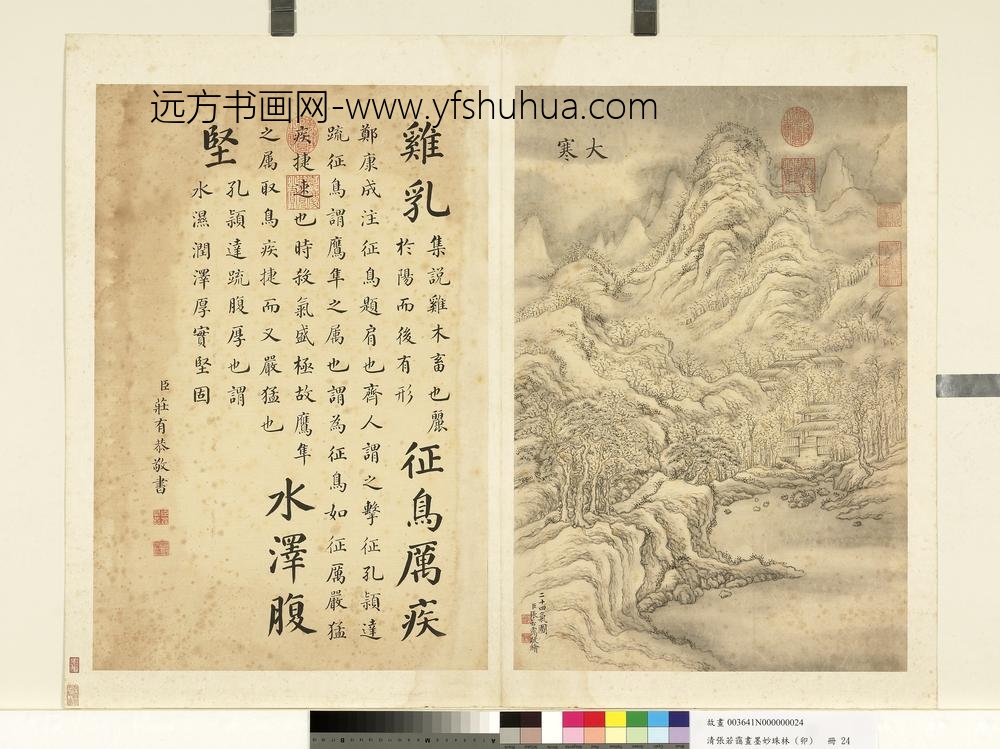 远方书画网-www.yfshuhua.com
大寒
二十四氣圖
臣張若靄敬繪
雞乳
集説雞木畜也麗
於陽而後有形
征鳥厲疾
鄭康成注征鳥題肩也齊人謂之擊征孔頴達
疏征鳥謂鷹隼之属也謂為征鳥如征厲嚴猛
疾捷速也時殺氣盛極故鷹隼
之属取鳥疾捷而又嚴猛也
水澤腹
堅
孔頴達疏腹厚也謂
水濕潤澤厚實堅固
臣莊有恭敬書
故畫 003641N000000024
清張若靄畫墨妙珠林（卯） 冊 24